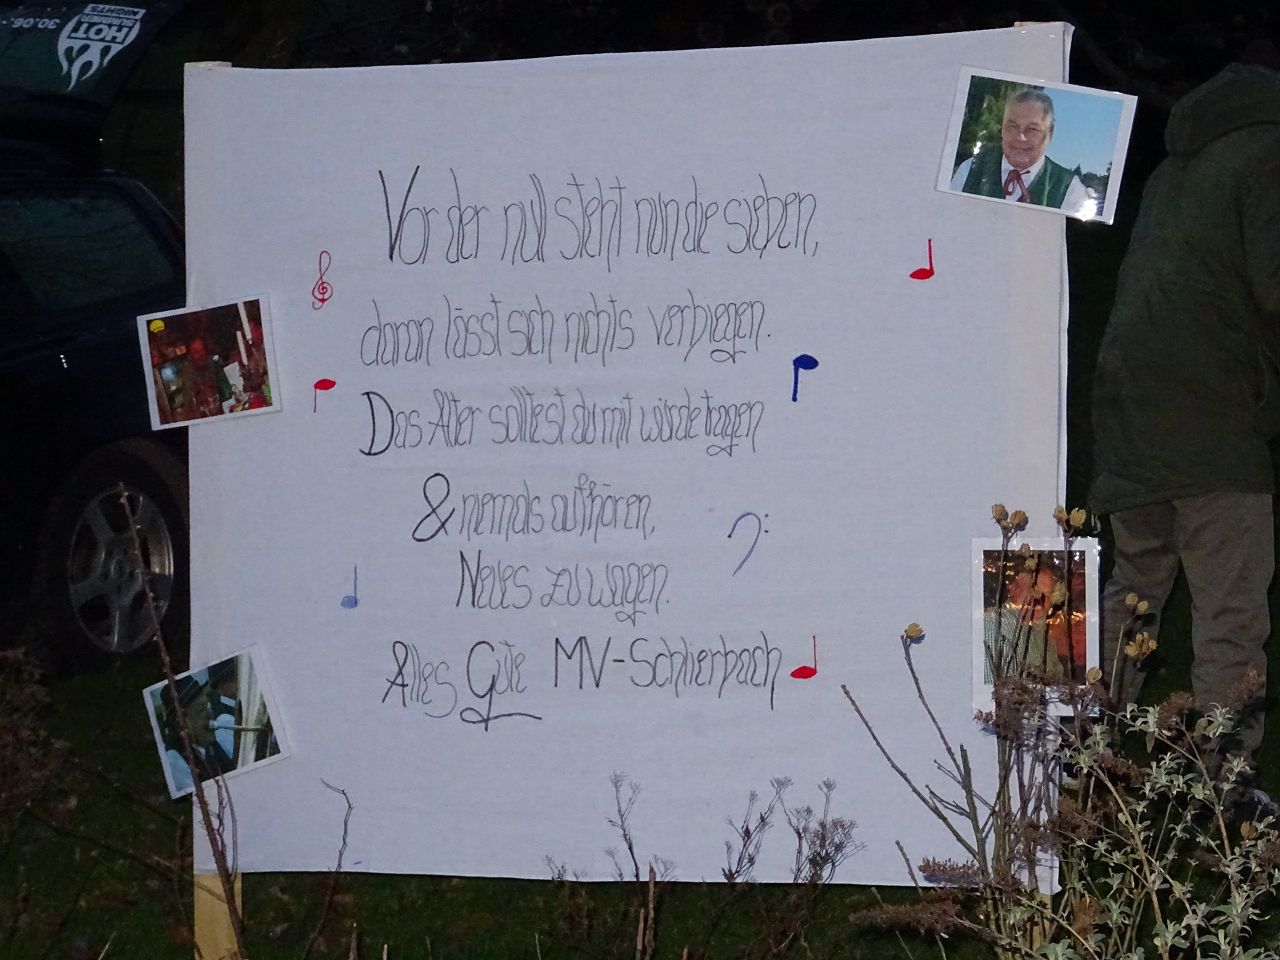 HOT
SUMMER
NIGHTS
30.06.-
Vor der null steht nun die sieben,
daran lässt sich nichts verbiegen.
Das Alter solltest du mit würde tragen
& niemals aufhören,
Neues zu wagen.
Alles Gute MV-Schlierbach